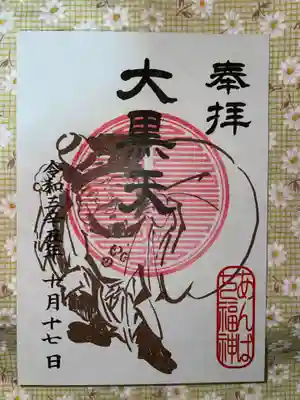 奉拝
大黒天
令和三年十月十七日
あんば
七福神